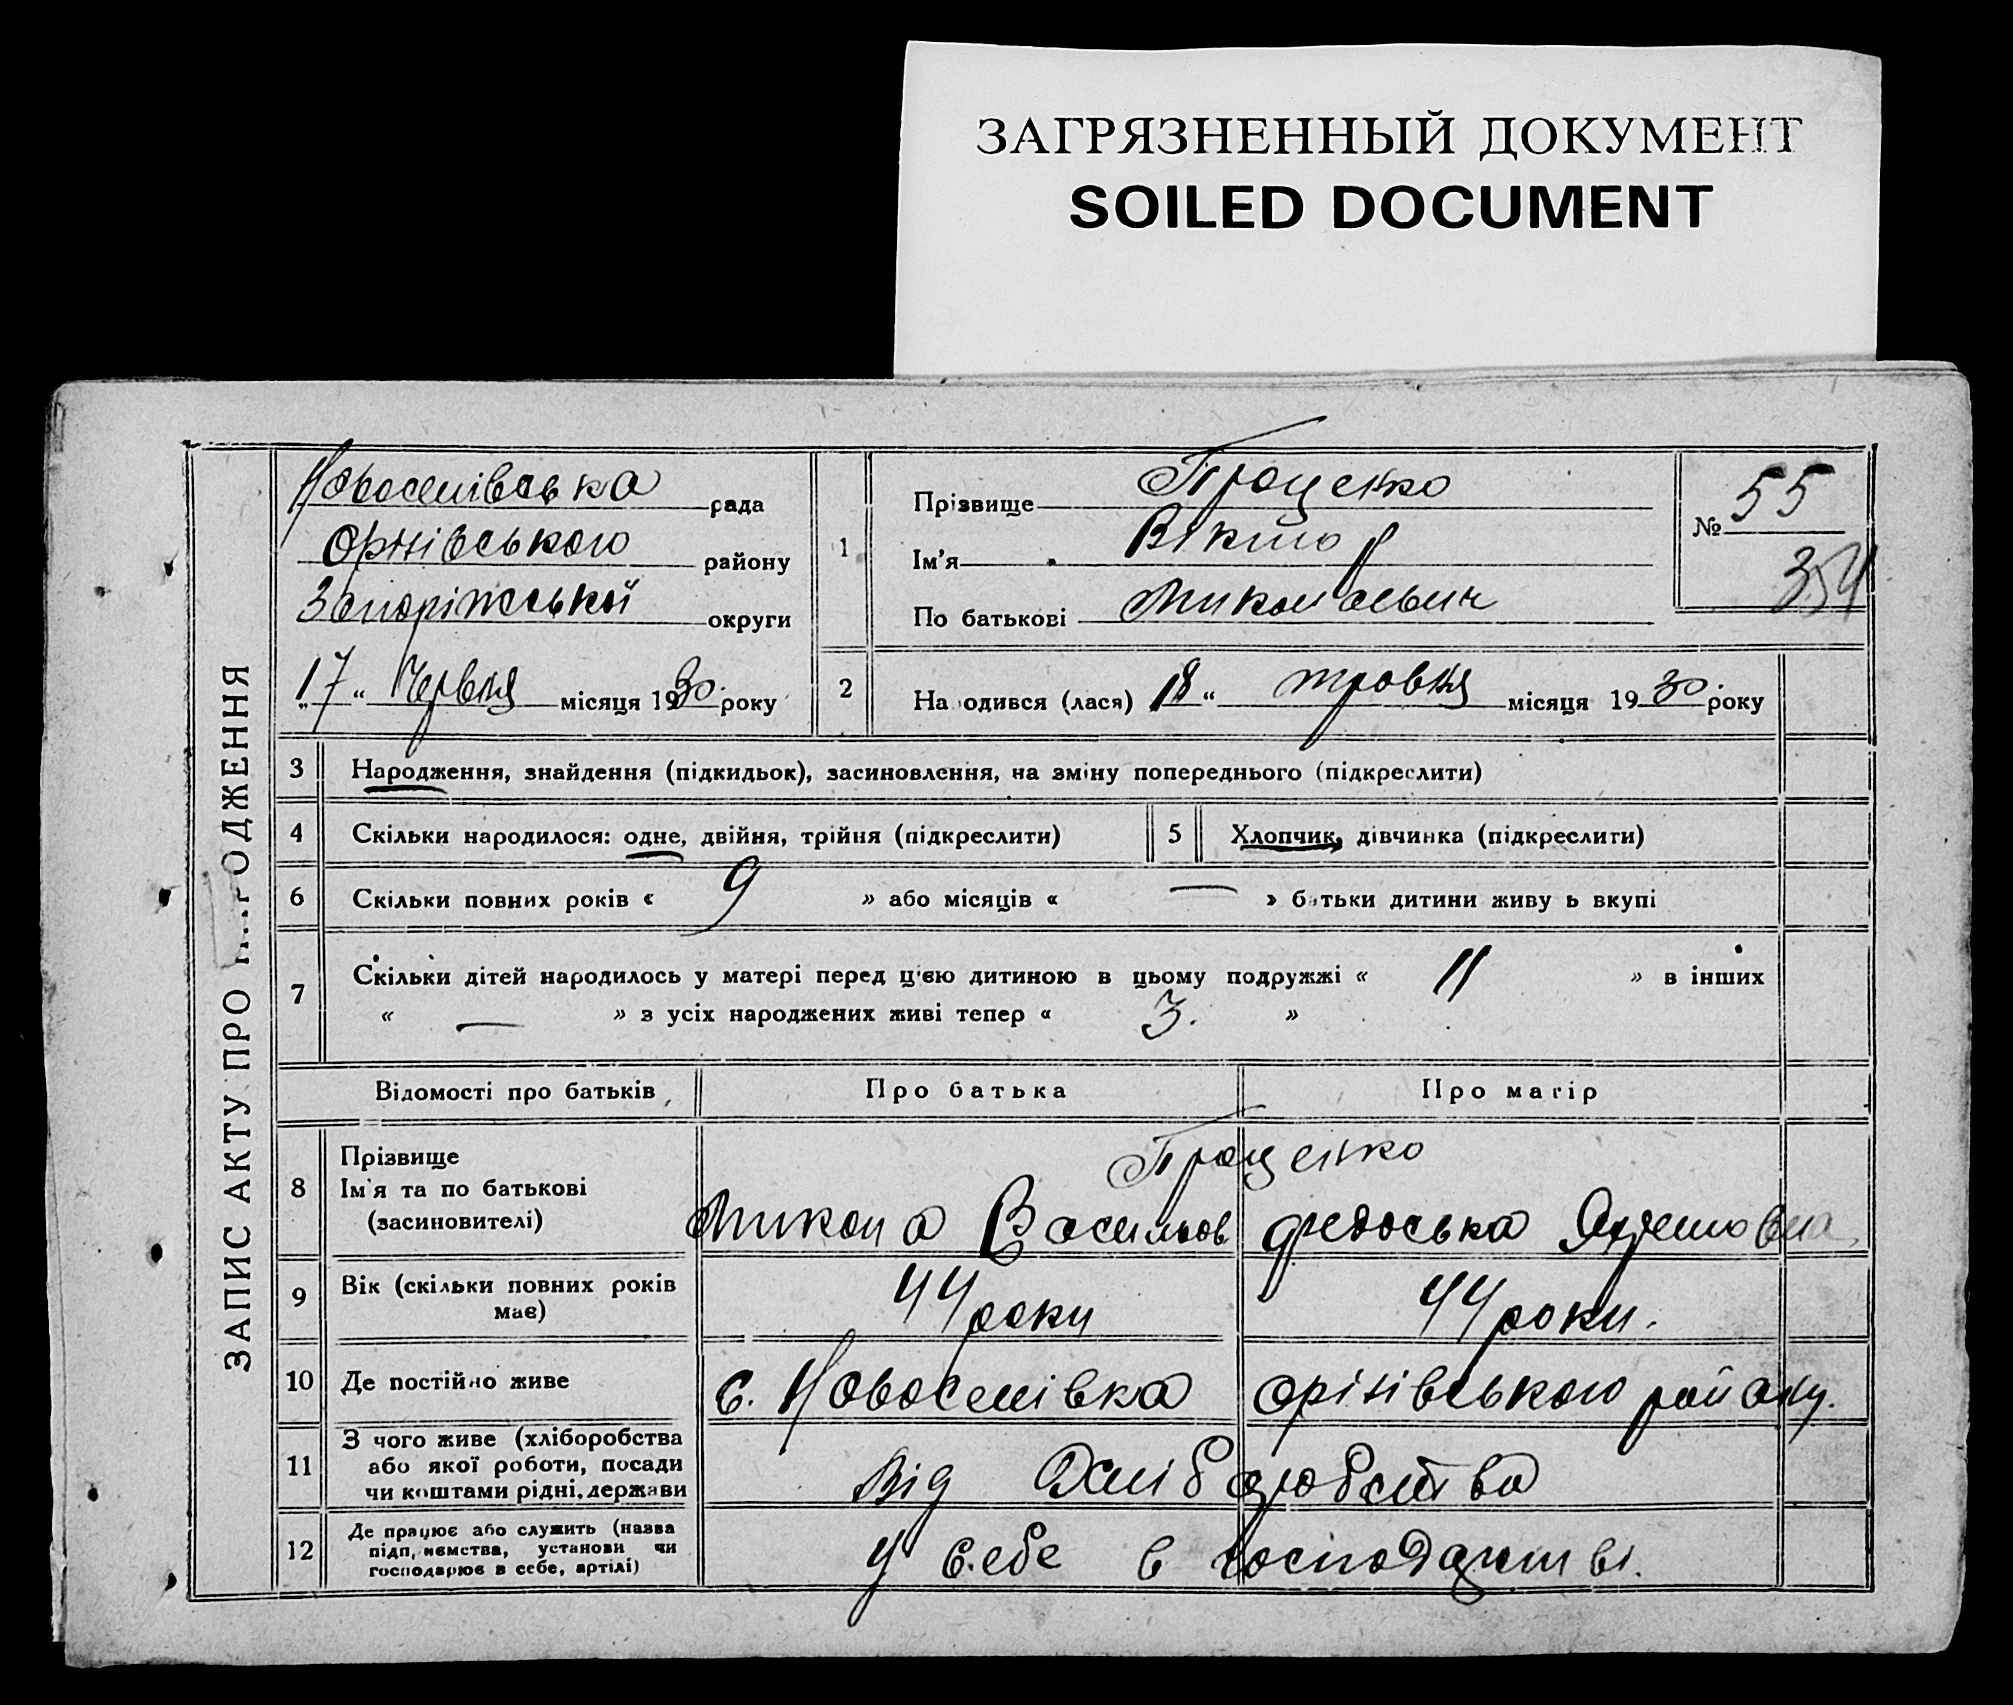 ЗАГРЯЗНЕННЫЙ ДОКУМЕНТ
SOILED DOCUMENT
ЗАПИС АКТУ ПРО НАРОДЖЕННЯ
Новоселівська рада
Оріхівського району
Запоріжської округи
„17“ Червня місяця 1930 року
1
Прізвище Проценко
Ім'я Віктор
По батькові Миколаевич
№ 55
354
2
Народився (лася) 18“ травня місяця 1930 року
3 Народження, знайдення (підкидьок), засиновлення, на зміну попереднього (підкреслити)
4 Скільки народилося: одне, двійня, трійня (підкреслити) 5 Хлопчик, дівчинка (підкреслити)
6 Скільки повних років « 9 » або місяців « — » батьки дитини живуть вкупі
7 Скільки дітей народилось у матері перед цією дитиною в цьому подружжі « 11 » в інших
« — » з усіх народжених живі тепер « 3. »
Відомості про батьків Про батька Про матір
8 Прізвище Проценко
Ім'я та по батькові
(засиновителі) Микола Васильов Федоська
9 Вік (скільки повних років має) 44 роки 44 роки.
10 Де постійно живе с. Новоселівка Оріхівського району.
11 З чого живе (хліборобства
або якої роботи, посади
чи коштами рідні, держави Від Хліборобства
12 Де працює або служить (назва
підприємства, установи чи
господарює в себе, артілі) У себе в господарстві.